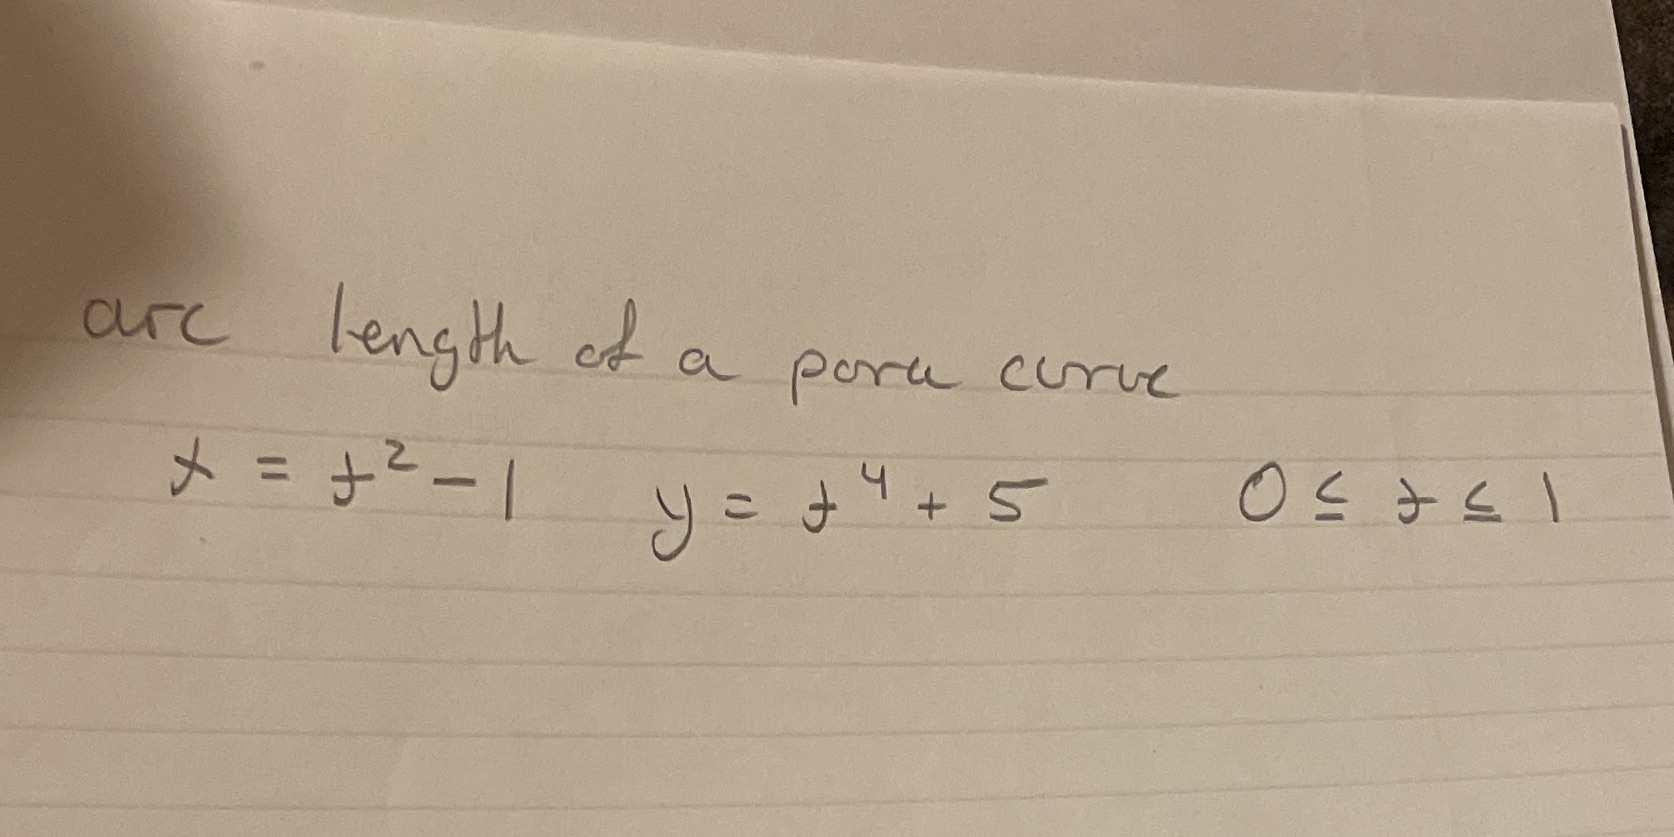 arc length of a para curve
x = t² - 1 y = t⁴ + 5 0 ≤ t ≤ 1